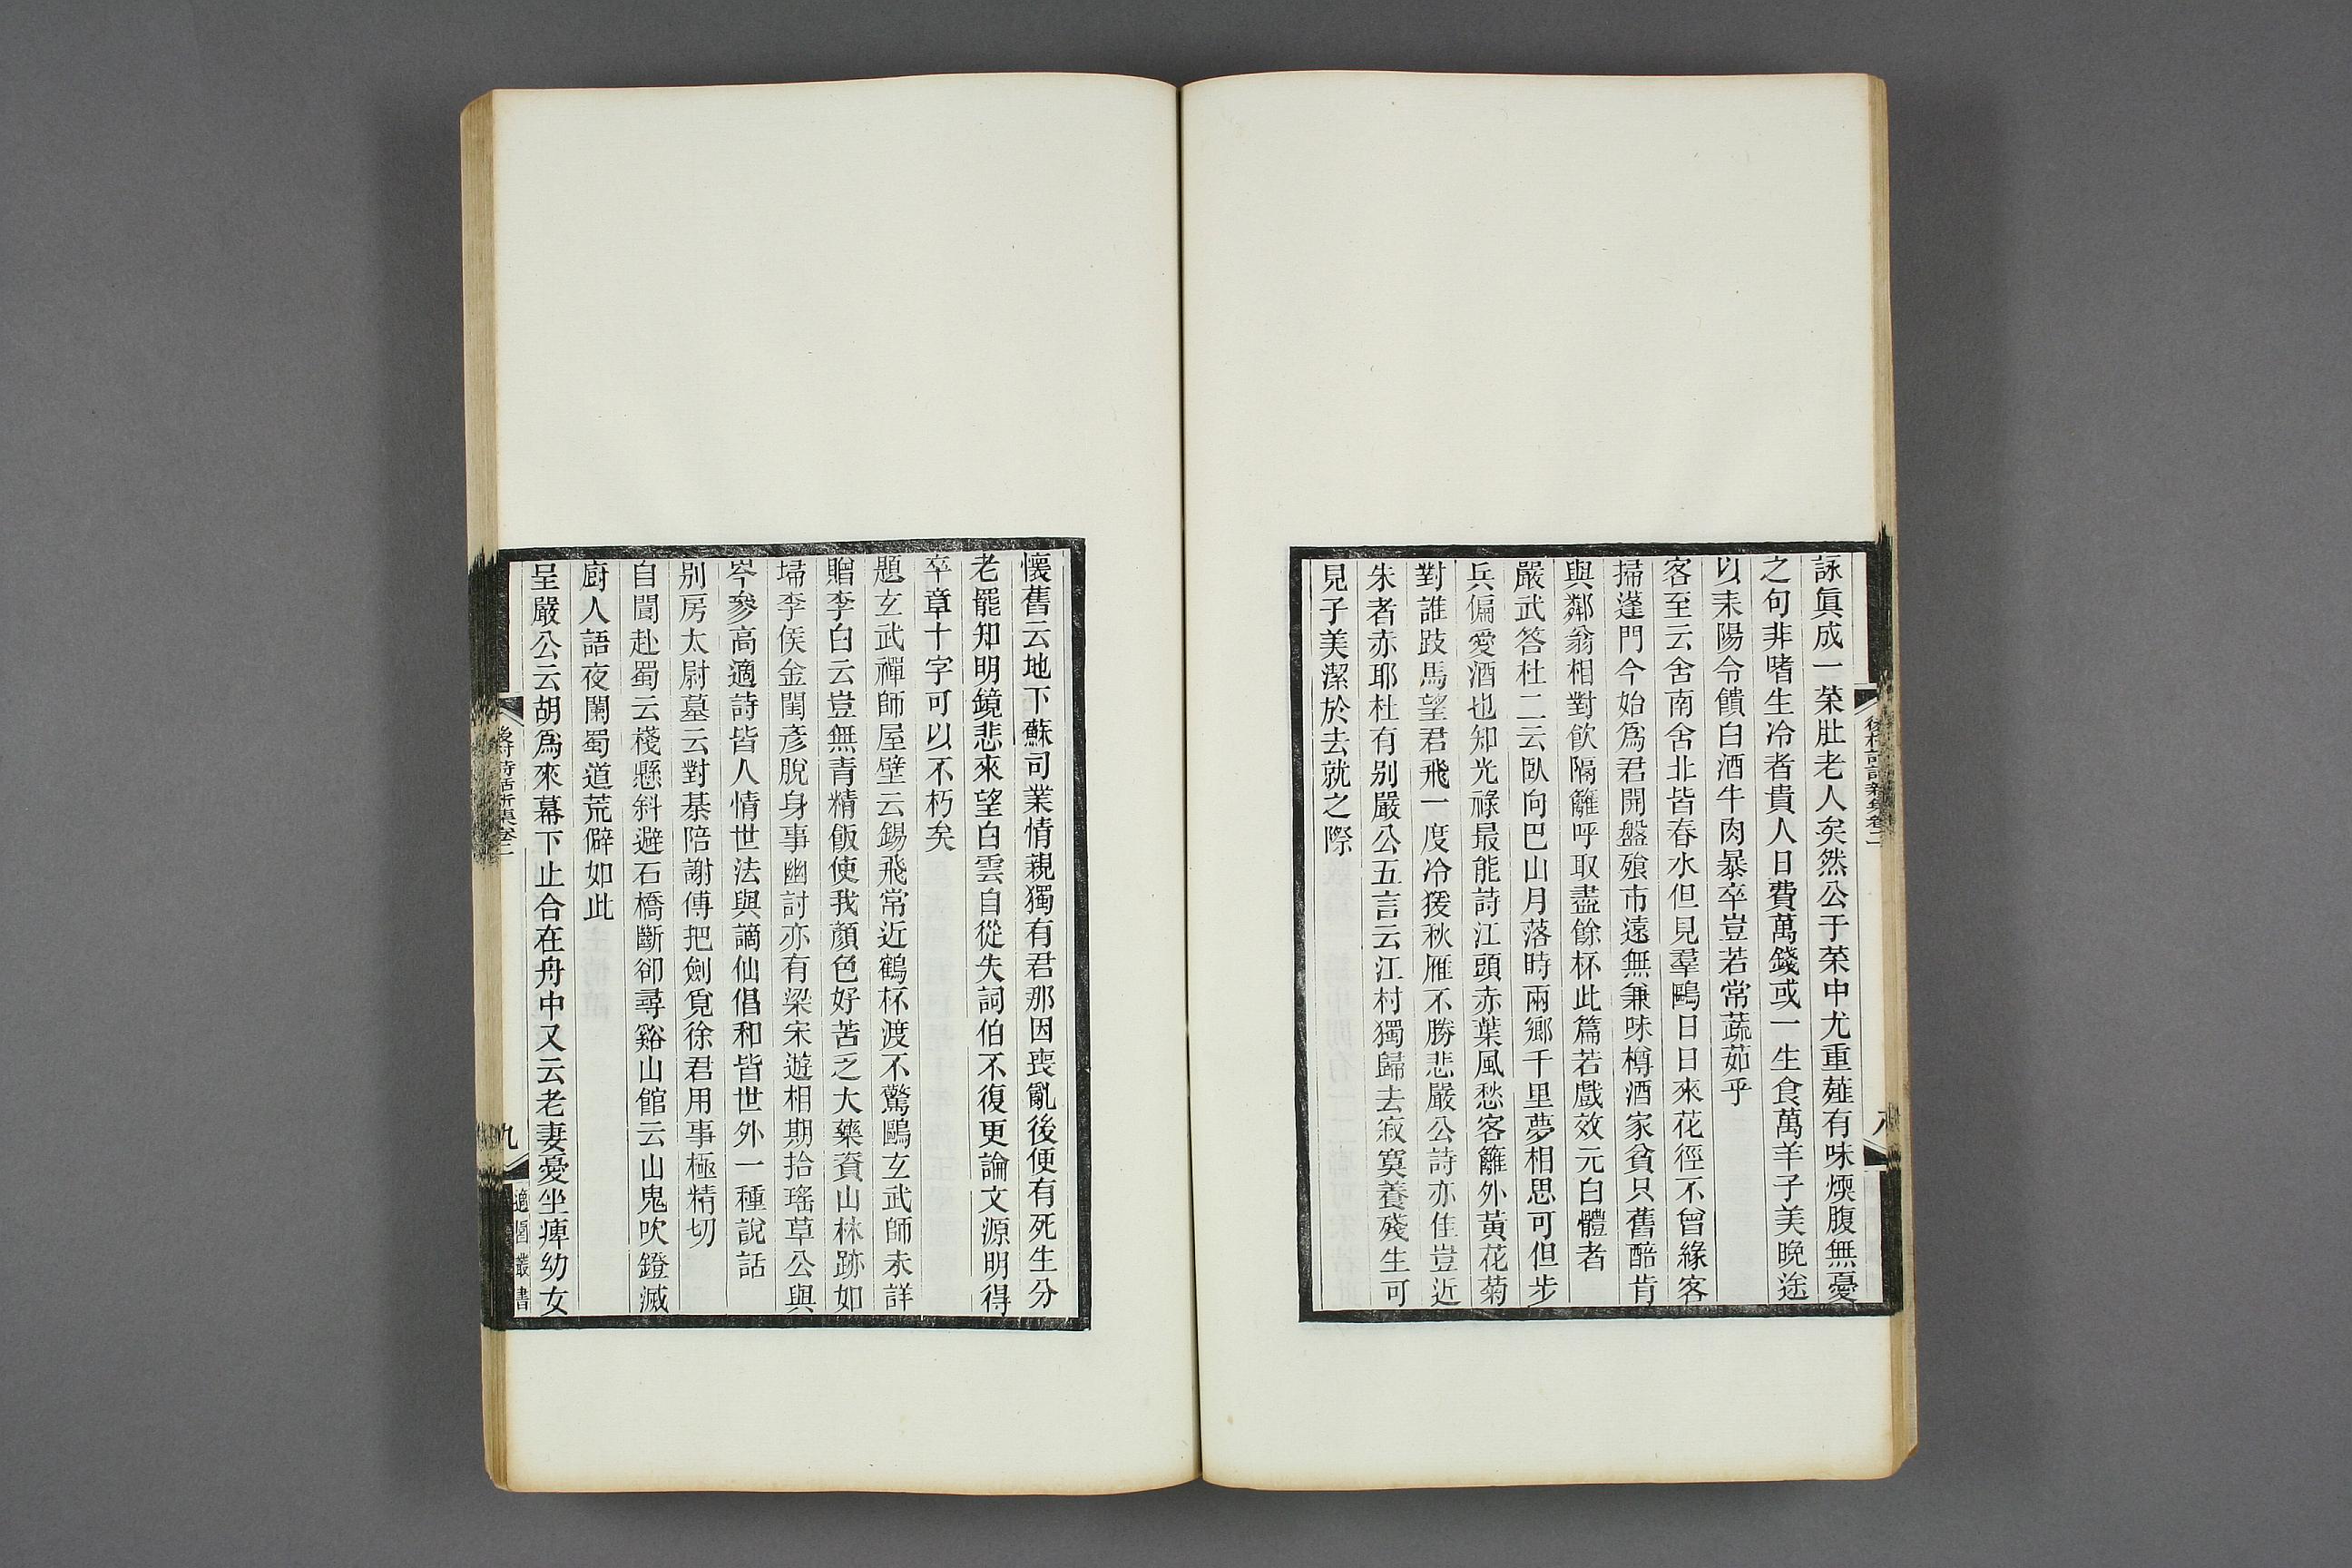 詠眞成一菜肚老人矣然公于菜中尤重薤有味煗腹無憂
之句非嗜生冷者貴人日費萬錢或一生食萬羊子美晚途
以耒陽令饋白酒牛肉暴卒豈若常蔬茹乎
客至云舍南舍北皆春水但見羣鷗日日來花徑不曾緣客
掃蓬門今始爲君開盤飱市遠無兼味樽酒家貧只舊醅肯
與鄰翁相對飮隔籬呼取盡餘杯此篇若戲效元白體者
嚴武答杜二云臥向巴山月落時兩鄉千里夢相思可但步
兵偏愛酒也知光祿最能詩江頭赤葉風愁客籬外黃花菊
對誰跂馬望君飛一度冷猨秋雁不勝悲嚴公詩亦佳豈近
朱者赤耶杜有别嚴公五言云江村獨歸去寂寞養殘生可
見子美潔於去就之際
後村詩話新集卷二
八
懷舊云地下蘇司業情親獨有君那因喪亂後便有死生分
老罷知明鏡悲來望白雲自從失詞伯不復更論文源明得
卒章十字可以不朽矣
題玄武禪師屋壁云錫飛常近鶴杯渡不驚鷗玄武師未詳
贈李白云豈無青精飯使我顏色好苦乏大藥資山林跡如
埽李侯金閨彥脫身事幽討亦有梁宋遊相期拾瑤草公與
岑參高適詩皆人情世法與謫仙倡和皆世外一種說話
别房太尉墓云對棊陪謝傅把劍覓徐君用事極精切
自閬赴蜀云棧懸斜避石橋斷卻尋谿山館云山鬼吹鐙滅
廚人語夜闌蜀道荒僻如此
呈嚴公云胡爲來幕下止合在舟中又云老妻憂坐痺幼女
後村詩話新集卷二
九
適園叢書